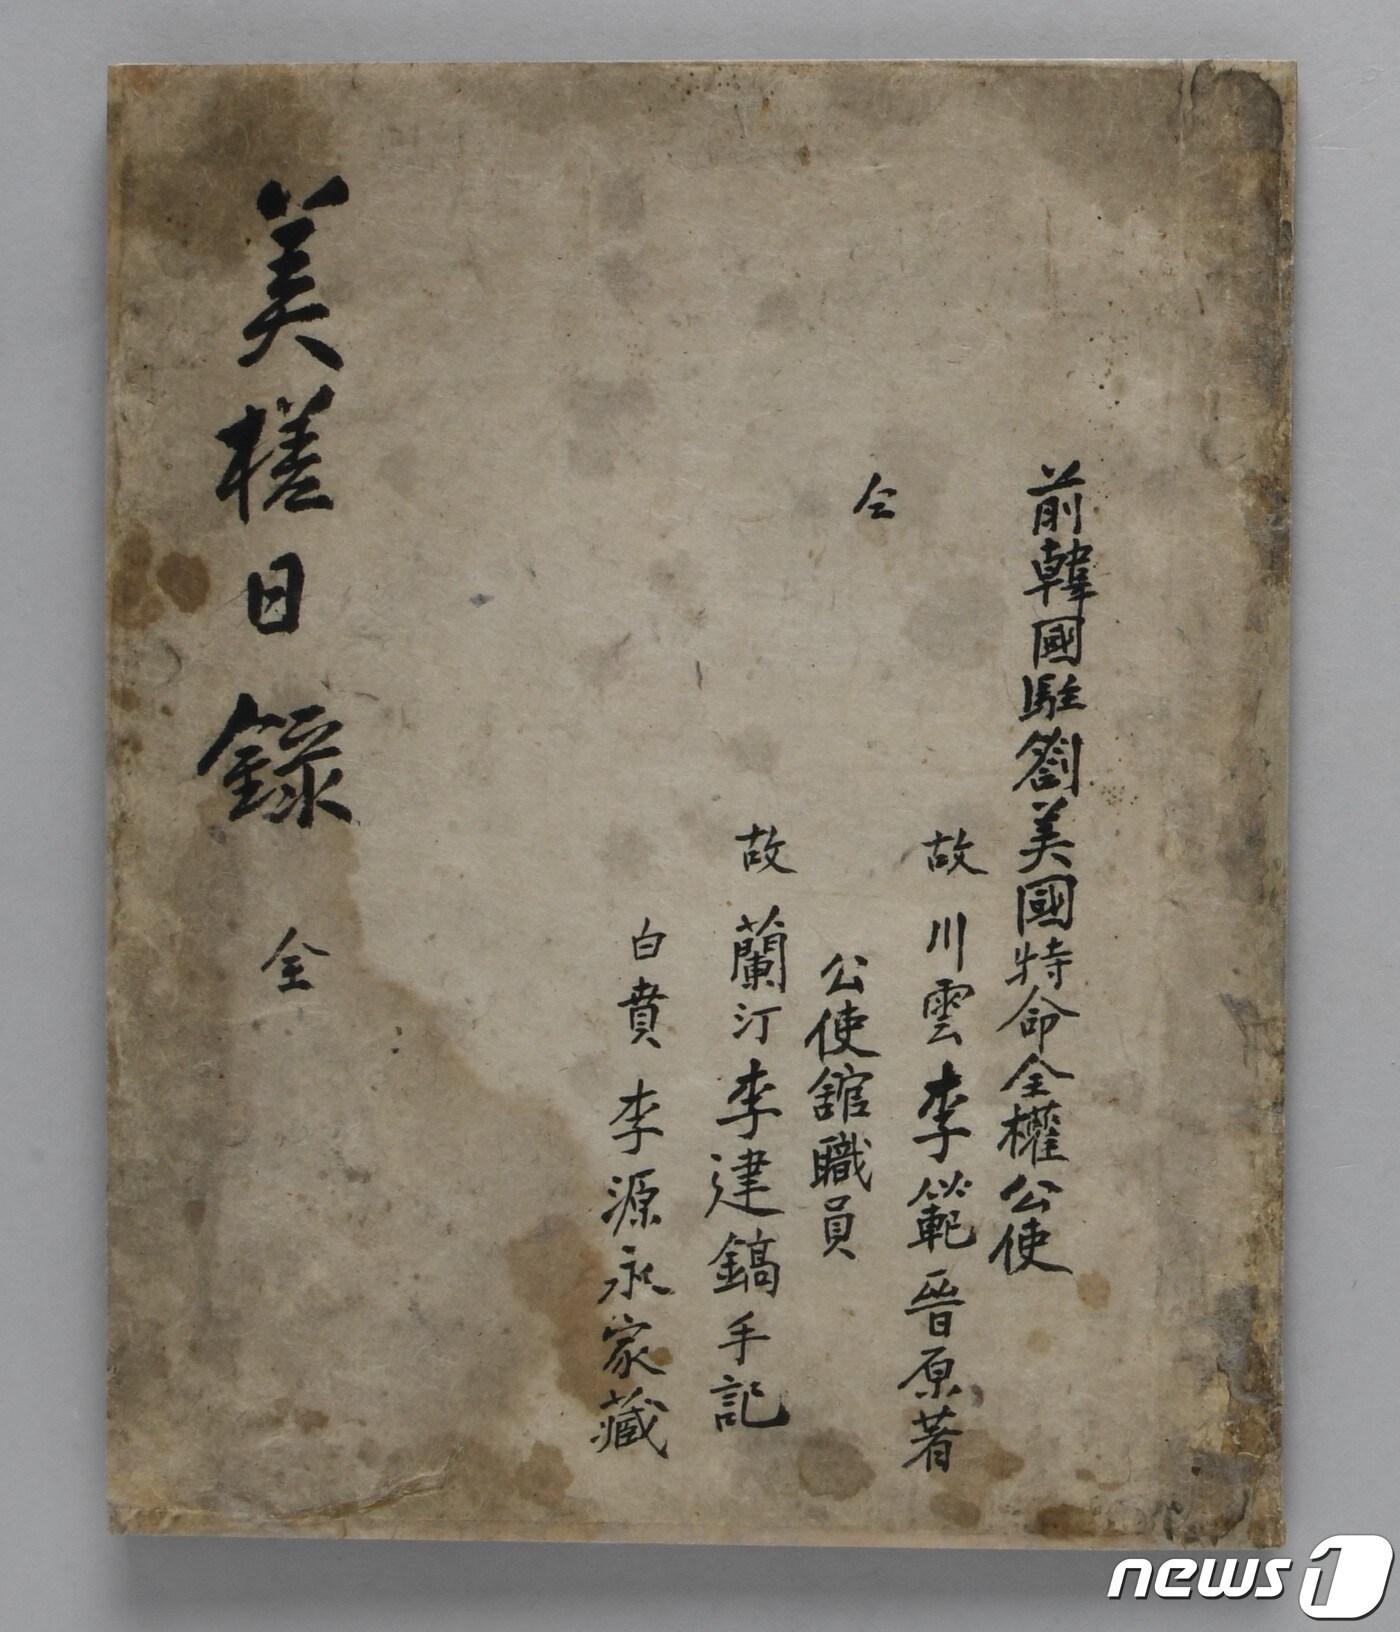 前韓國駐劄美國特命全權公使
故 川雲 李範晉 原著
仝 公使舘職員
故 蘭汀 李建鎬 手記
白賁 李源永 家藏
美槎日錄 全
news1